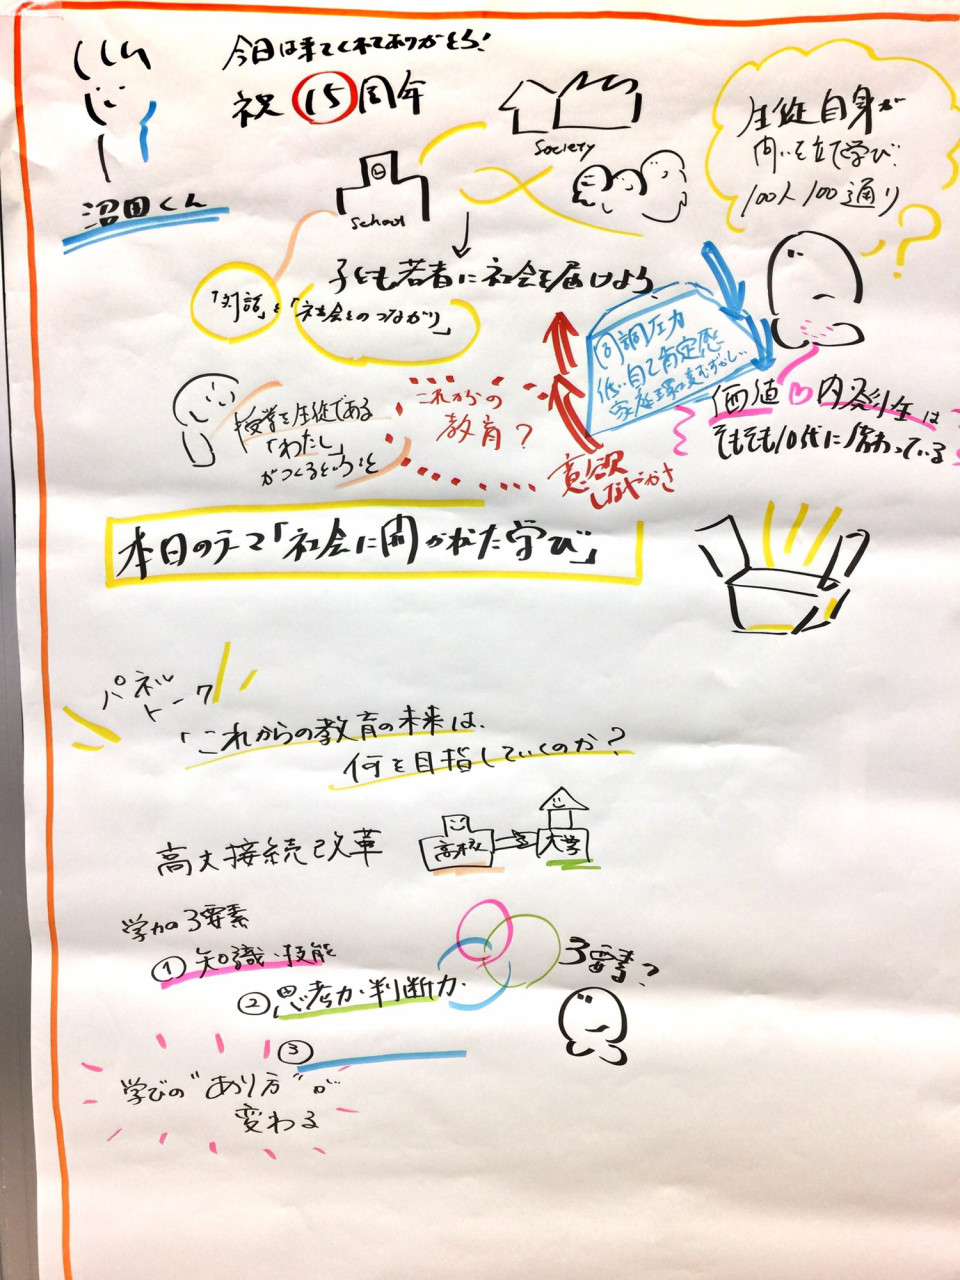 今日は来てくれてありがとう!
祝 15 周年
沼田くん
society
school
生徒自身が
問いを立て学び
100人100通り
?
子ども若者に社会を届けよう
「対話」と「社会とのつながり」
同調圧力
低い自己肯定感
価値♡内発性は
そもそも10代に備わっている
授業を生徒である
「わたし」
がつくるということ
これからの
教育?
意欲
しなやかさ
本日のテーマ「社会に開かれた学び」
パネル
トーク
「これからの教育の未来は、
何を目指していくのか?
高大接続改革
高校
大学
学力の3要素
① 知識・技能
② 思考力・判断力・
③
3要素?
学びの"あり方"が
変わる